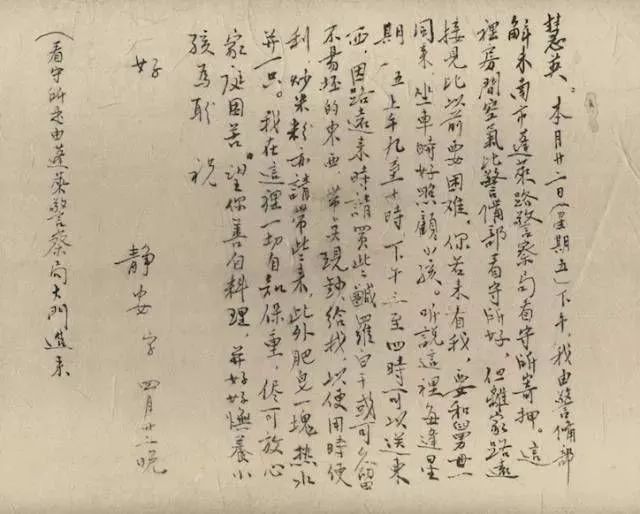 慧英。本月廿二日(星期五)下午,我由警備部
解來南市蓬萊路警察局看守所寄押。這
裡房間空氣比警備部看守所好,但離家路遠
接見比以前要困難,你若來看我,要和舅母
同來,坐車時好照顧小孩。听說這裡每逢星
期一、五上午九至十時下午三至四時可以送東
西,因路遠來時請買些鹹蘿白干或可久留
不易坯的東西,带点現鈔給我,以便用時便
利,炒米粉亦請带些來,此外肥皂一塊热水
瓶一只。我在這裡一切自知保重,侭可放心
家庭困苦。望你善自料理,并好好撫養小
孩為盼 祝
好
静安 字 四月廿二晚
(看守所是由蓬萊警察局大門進來)